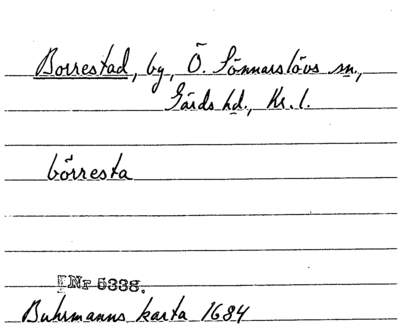 Borrestad, by, Ö. Sönnarslövs sn.,
Gärds hd., Kr. l.
börresta
Nr 5338.
Buhrmanns karta 1684